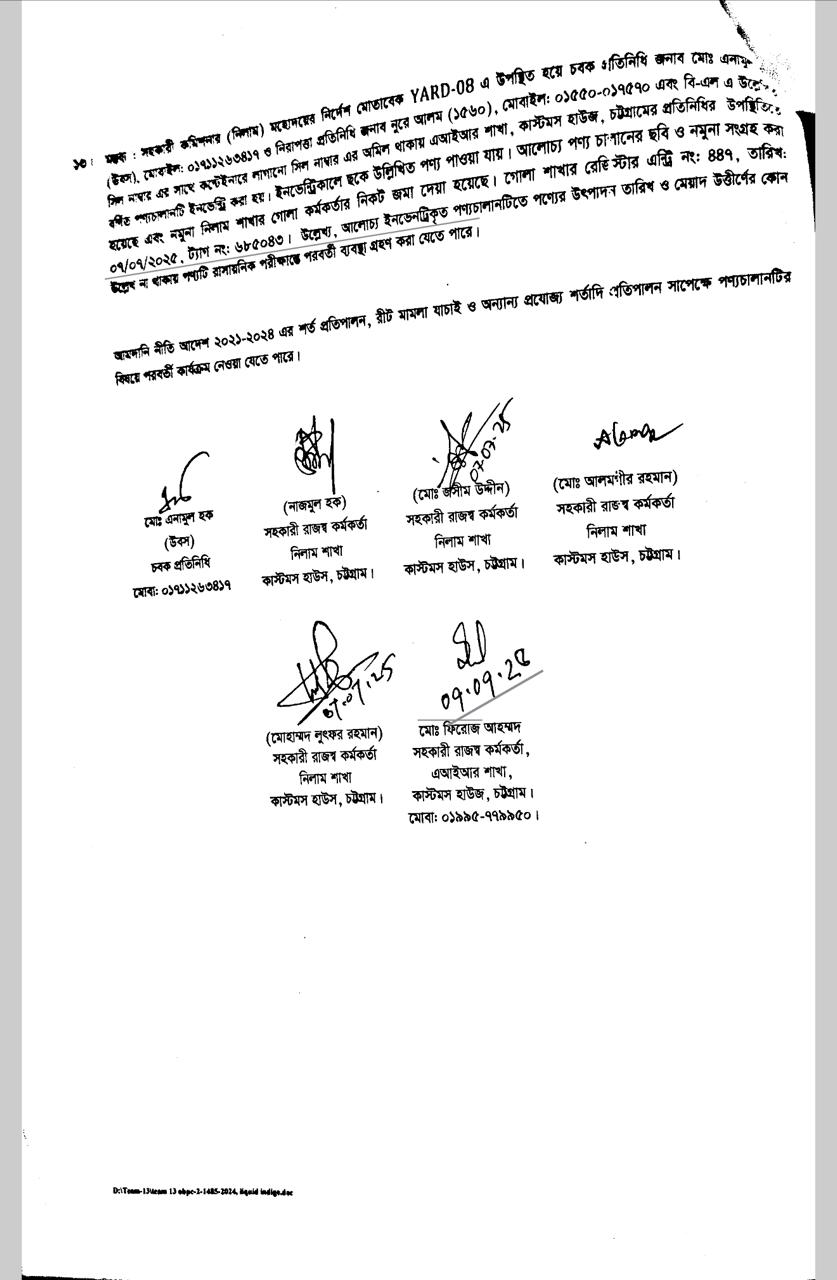 ১৩। মন্তব্য : সহকারী কমিশনার (নিলাম) মহোদয়ের নির্দেশ মোতাবেক YARD-08 এ উপস্থিত হয়ে চবক প্রতিনিধি জনাব মোঃ এনামুল
(উবস), মোবাইল: ০১৭১১২৬৩৪১৭ ও নিরাপত্তা প্রতিনিধি জনাব নুরে আলম (১৫৬০), মোবাইল: ০১৫৫০-০১৭৫৭০ এবং বি-এল এ
সিল নাম্বার এর সাথে কন্টেইনারে লাগানো সিল নাম্বার এর অমিল থাকায় এআইআর শাখা, কাস্টমস হাউজ, চট্টগ্রামের প্রতিনিধির উপস্থিতিতে
বর্ণিত পণ্যচালানটি ইনভেন্ট্রি করা হয়। ইনভেন্ট্রিকালে ছকে উল্লিখিত পণ্য পাওয়া যায়। আলোচ্য পণ্য চালানের ছবি ও নমুনা সংগ্রহ করা
হয়েছে এবং নমুনা নিলাম শাখার গোলা কর্মকর্তার নিকট জমা দেয়া হয়েছে। গোলা শাখার রেজিস্টার এন্ট্রি নং: ৪৪৭, তারিখ:
০৭/০৭/২০২৫, ট্যাগ নং: ৬৮৫০৪৩। উল্লেখ্য, আলোচ্য ইনভেনট্রিকৃত পণ্যচালানটিতে পণ্যের উৎপাদন তারিখ ও মেয়াদ উত্তীর্ণের কোন
উল্লেখ না থাকায় পণ্যটি রাসায়নিক পরীক্ষান্তে পরবর্তী ব্যবস্থা গ্রহণ করা যেতে পারে।
আমদানি নীতি আদেশ ২০২১-২০২৪ এর শর্ত প্রতিপালন, রীট মামলা যাচাই ও অন্যান্য প্রযোজ্য শর্তাদি প্রতিপালন সাপেক্ষে পণ্যচালানটির
বিষয়ে পরবর্তী কার্যক্রম নেওয়া যেতে পারে।
মোঃ এনামুল হক
(উবস)
চবক প্রতিনিধি
মোবা: ০১৭১১২৬৩৪১৭
(নাজমুল হক)
সহকারী রাজস্ব কর্মকর্তা
নিলাম শাখা
কাস্টমস হাউস, চট্টগ্রাম।
07-07-25
(মোঃ জসীম উদ্দীন)
সহকারী রাজস্ব কর্মকর্তা
নিলাম শাখা
কাস্টমস হাউস, চট্টগ্রাম।
(মোঃ আলমগীর রহমান)
সহকারী রাজস্ব কর্মকর্তা
নিলাম শাখা
কাস্টমস হাউস, চট্টগ্রাম।
07.07.25
(মোহাম্মদ লুৎফর রহমান)
সহকারী রাজস্ব কর্মকর্তা
নিলাম শাখা
কাস্টমস হাউস, চট্টগ্রাম।
০৭.০৭.২৫
মোঃ ফিরোজ আহম্মদ
সহকারী রাজস্ব কর্মকর্তা,
এআইআর শাখা,
কাস্টমস হাউজ, চট্টগ্রাম।
মোবা: ০১৯৯৫-৭৭৯৯৫০।
D:\Team-13\team 13 obpc-2-1485-2024, liquid indigo.doc